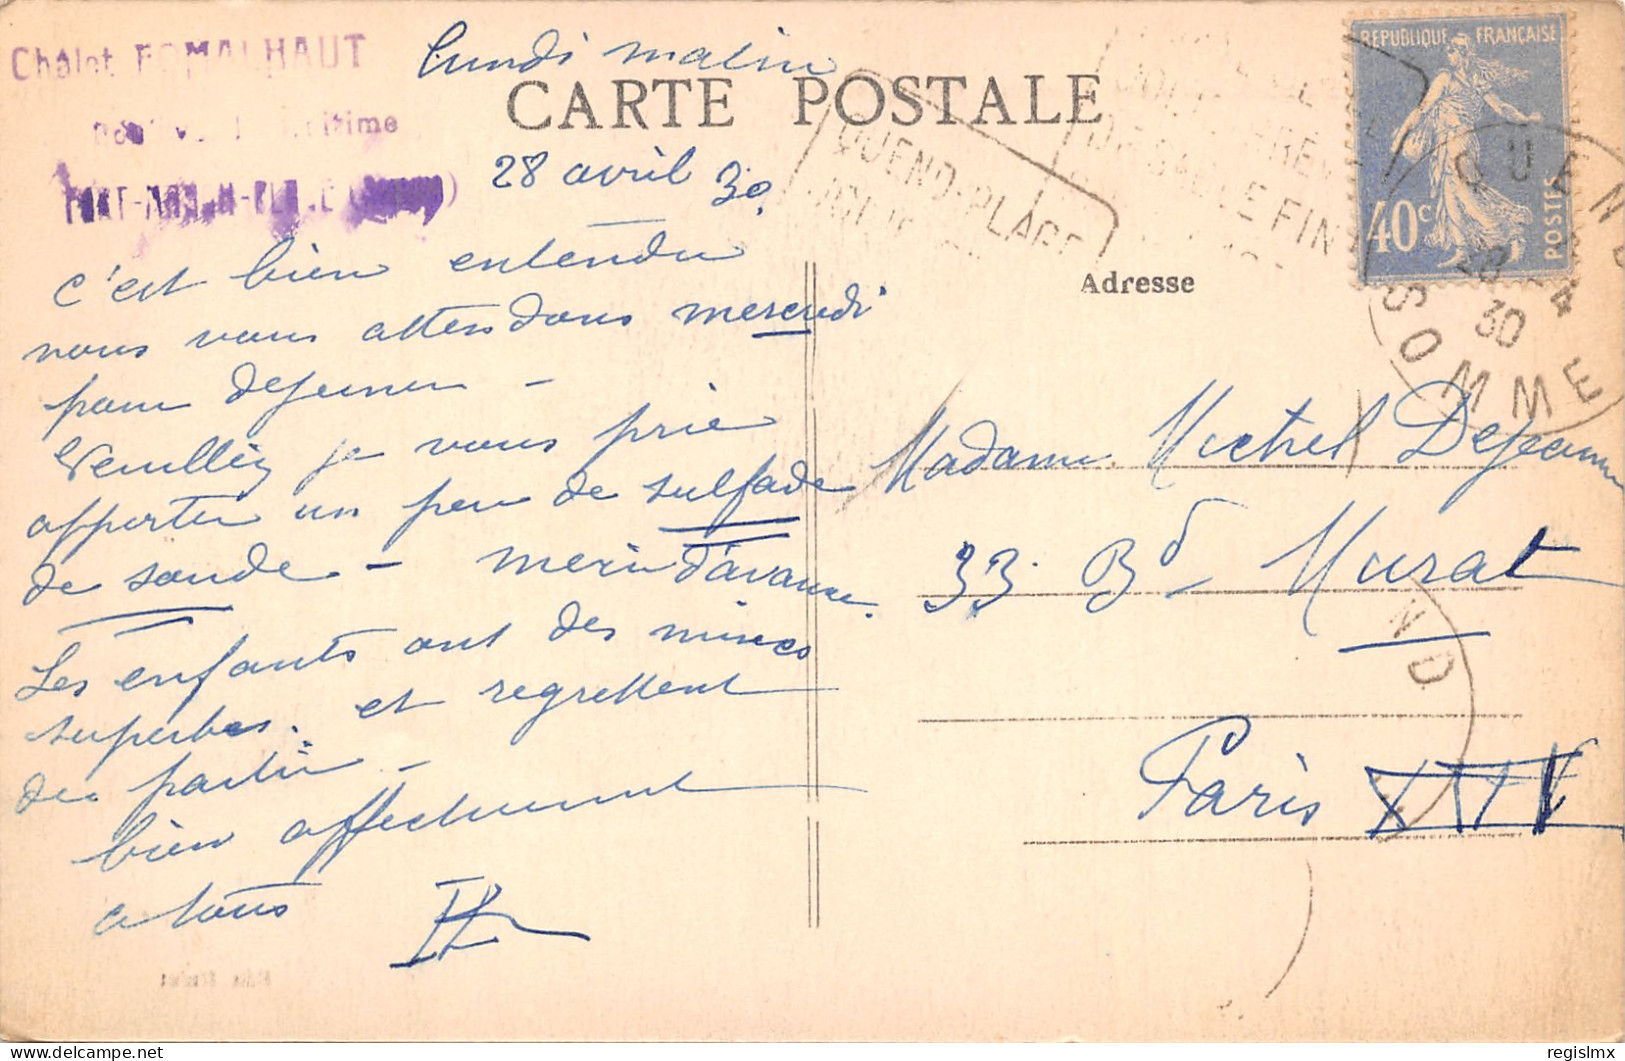 Châlet FOMALHAUT
lundi matin
CARTE POSTALE
28 avril 30.
c'est bien entendu
nous vous attendons mercredi
pour dejeuner -
Veuillez je vous prie
apporter un peu de sulfade
de soude - merci d'avance.
Les enfants ont des mines
superbes. et regrettent
de partir -
bien affectueusement
a tous
QUEND-PLAGE
DE SABLE FIN
REPUBLIQUE FRANÇAISE
40c
POSTES
QUEND
28 -4
30
SOMME
Adresse
Madame Michel Dejeanne
33 Bd Murat
ND
Paris XVI
delcampe.net
regislmx